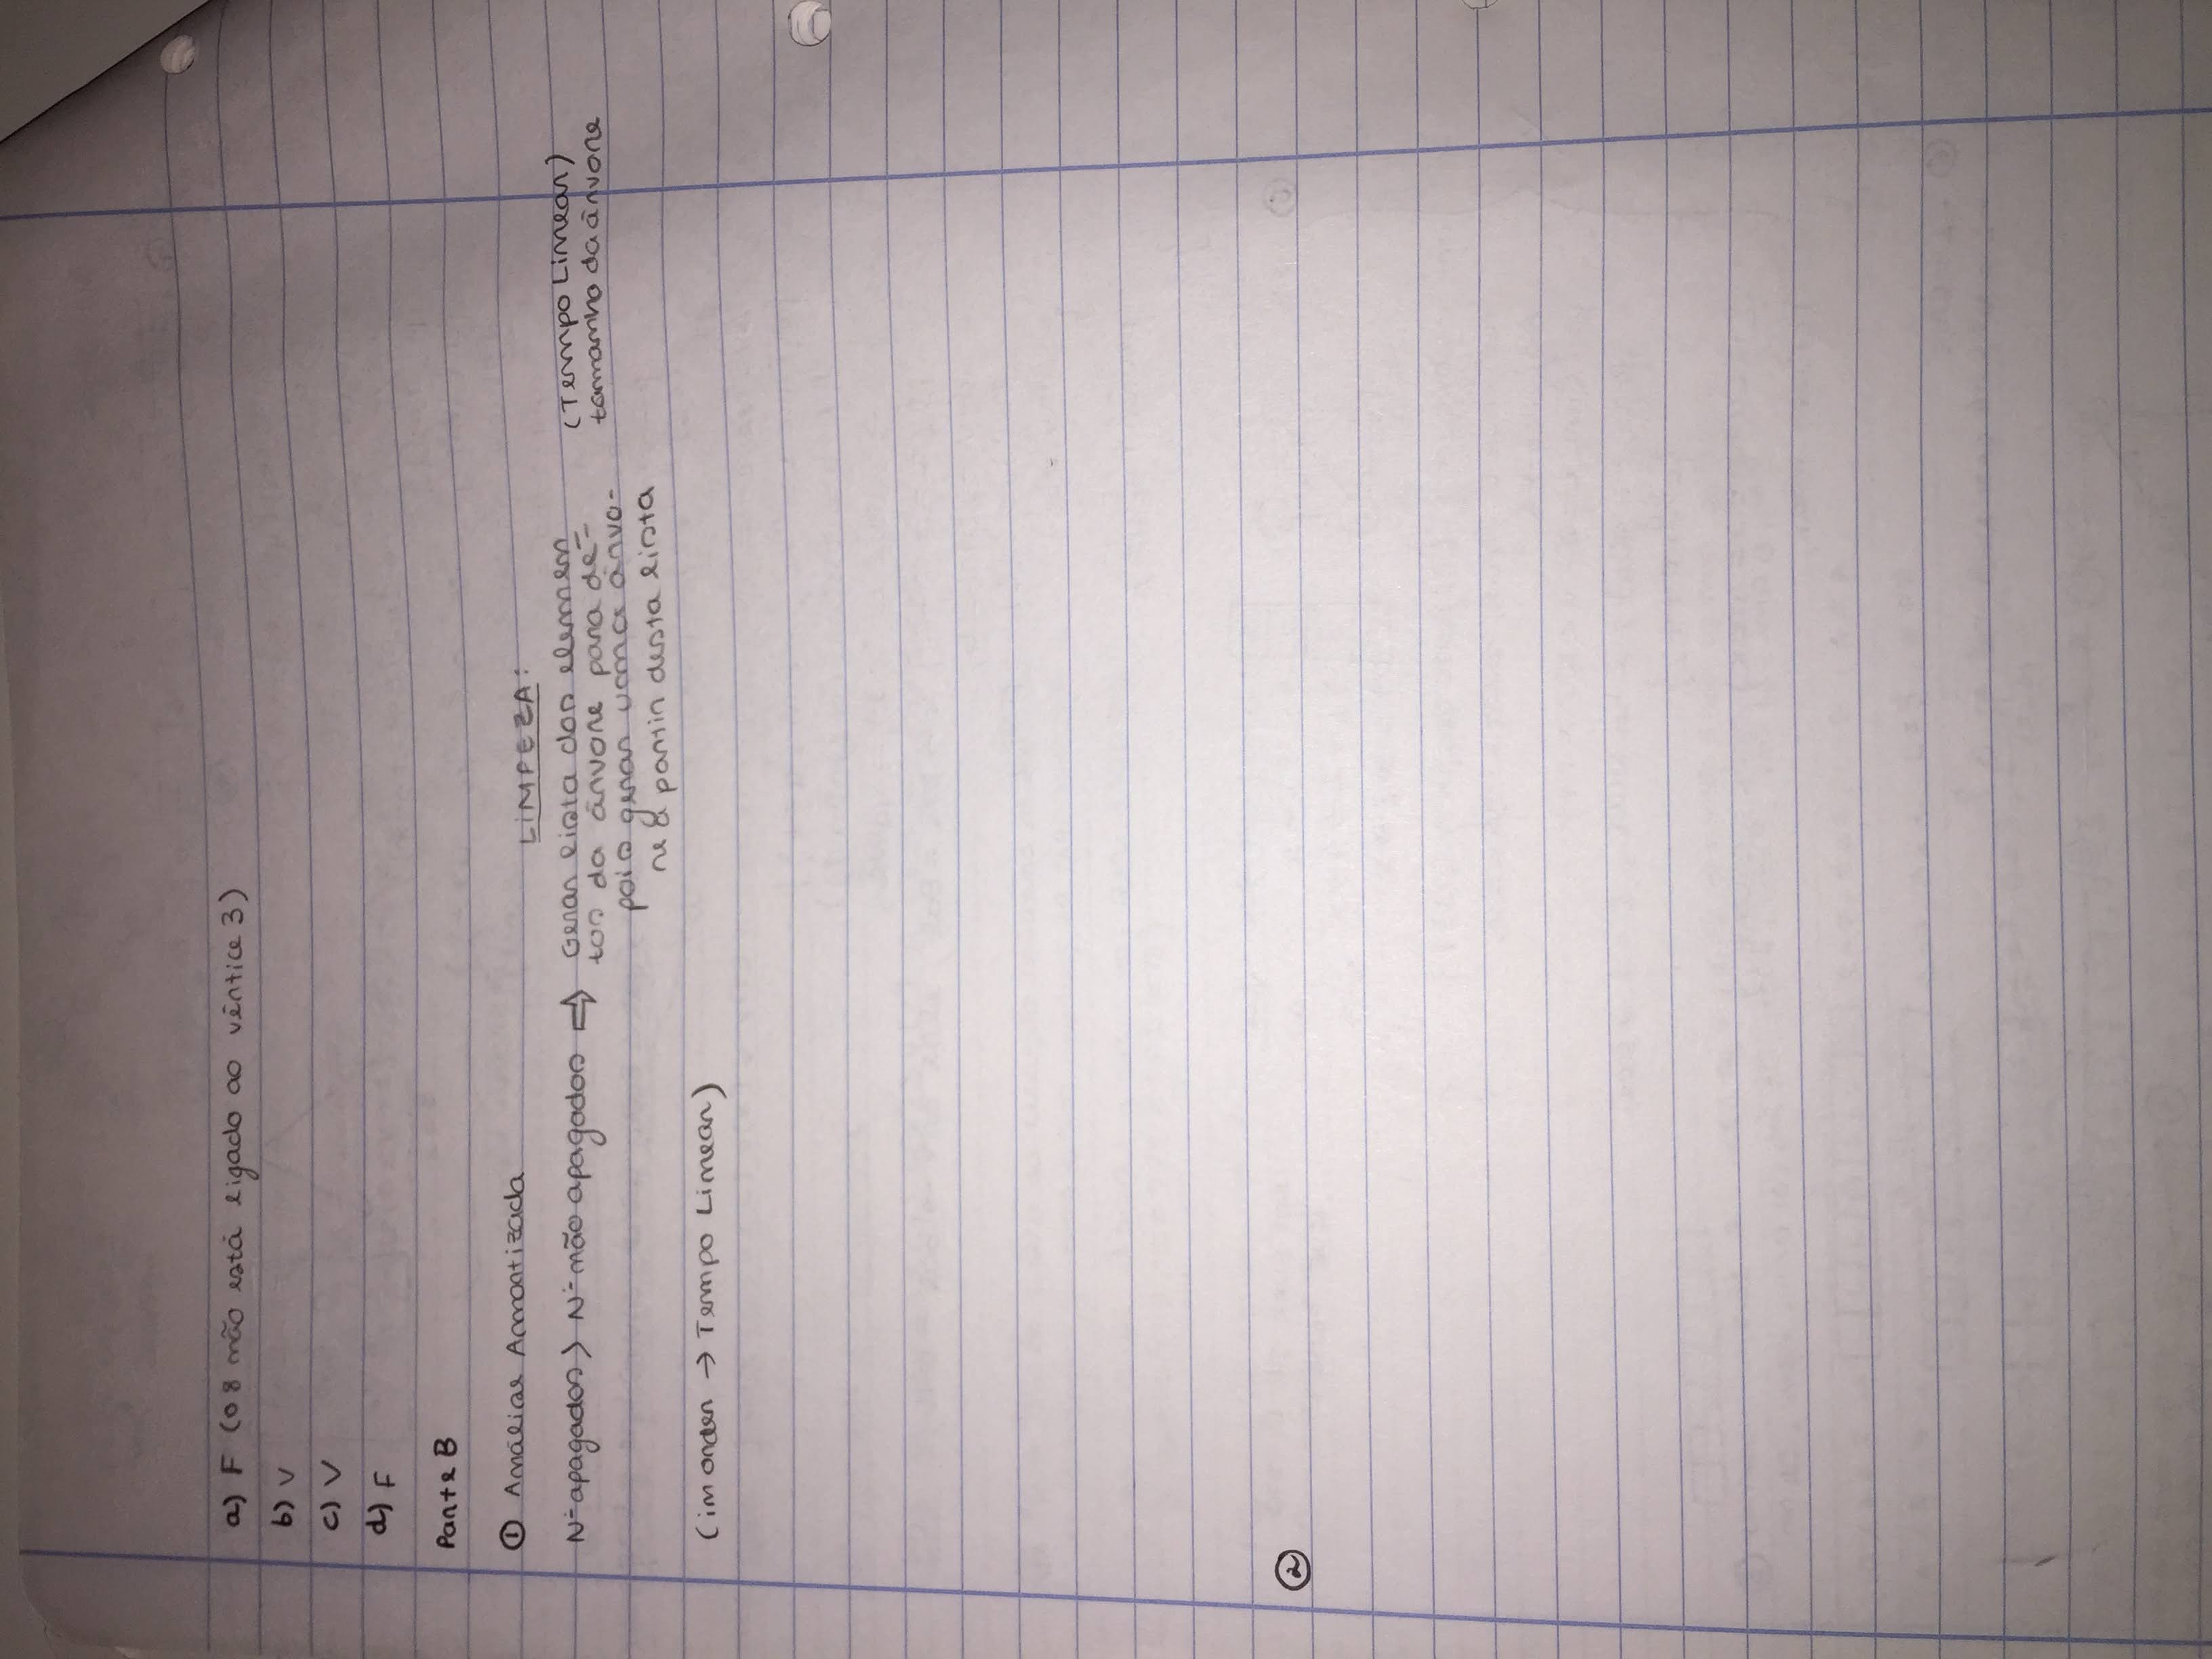 a) F (o 8 não está ligado ao vértice 3)
b) V
c) V
d) F
Parte B
① Análise Amortizada
LIMPEZA:
Nº apagados > Nº não apagados ⇒ Gerar lista dos elemen
tos da árvore para de-
pois gerar uma árvo-
re a partir desta lista
(Tempo Linear)
tamanho da árvore
(in order → Tempo Linear)
②